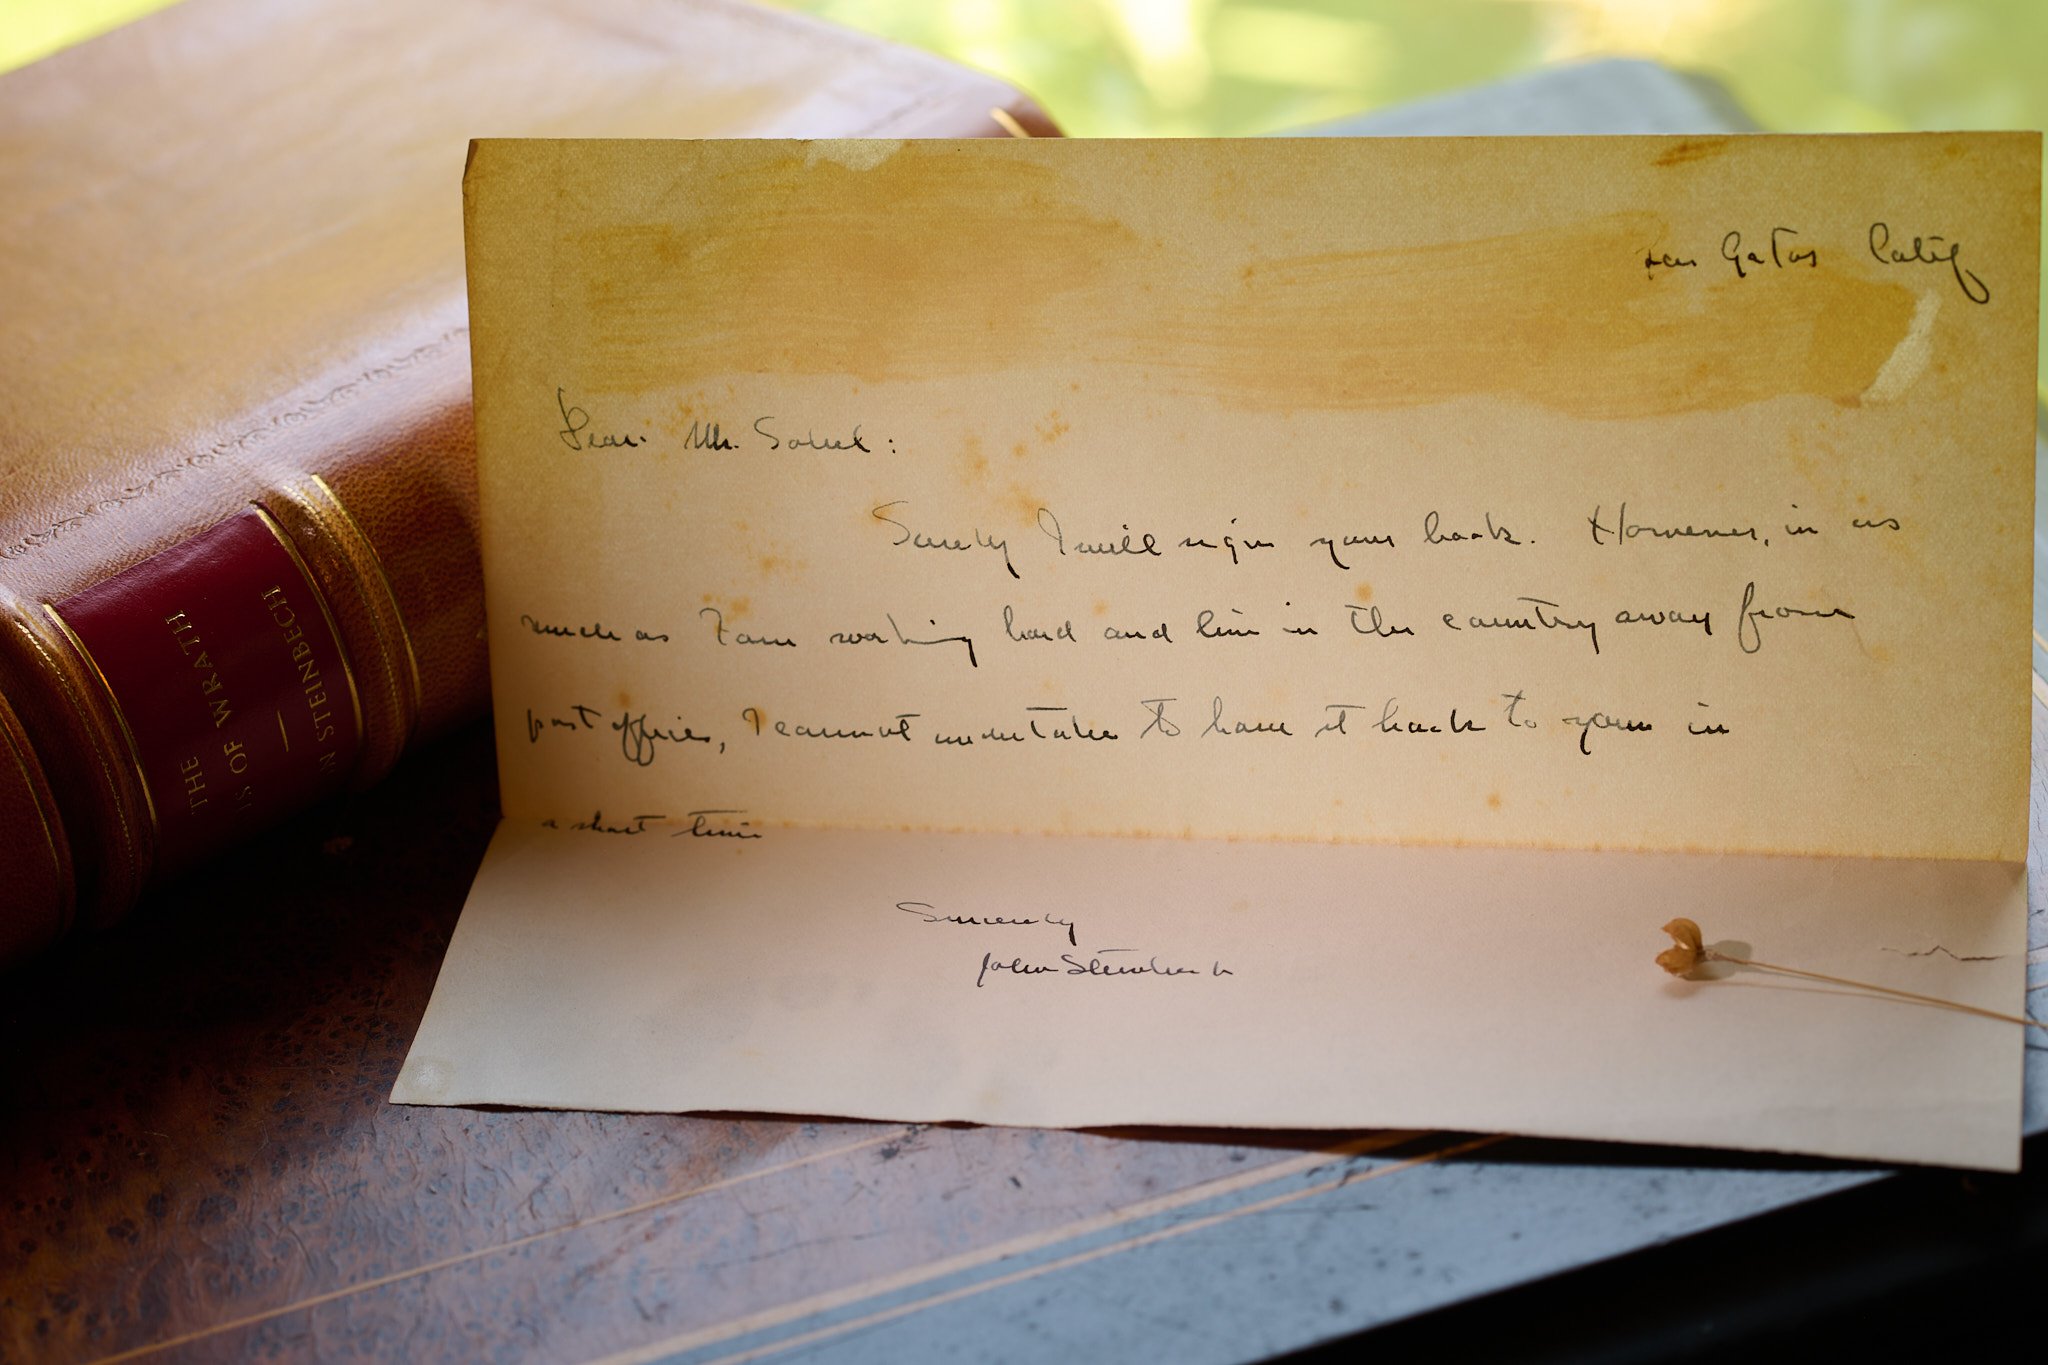 THE
S OF WRATH
N STEINBECH
Los Gatos Calif
Dear Mr.
Surely I will sign your book. However, in as
much as I am working hard and live in the country away from
post offices, I cannot undertake to have it back to you in
a short time
Sincerely
John Steinbeck